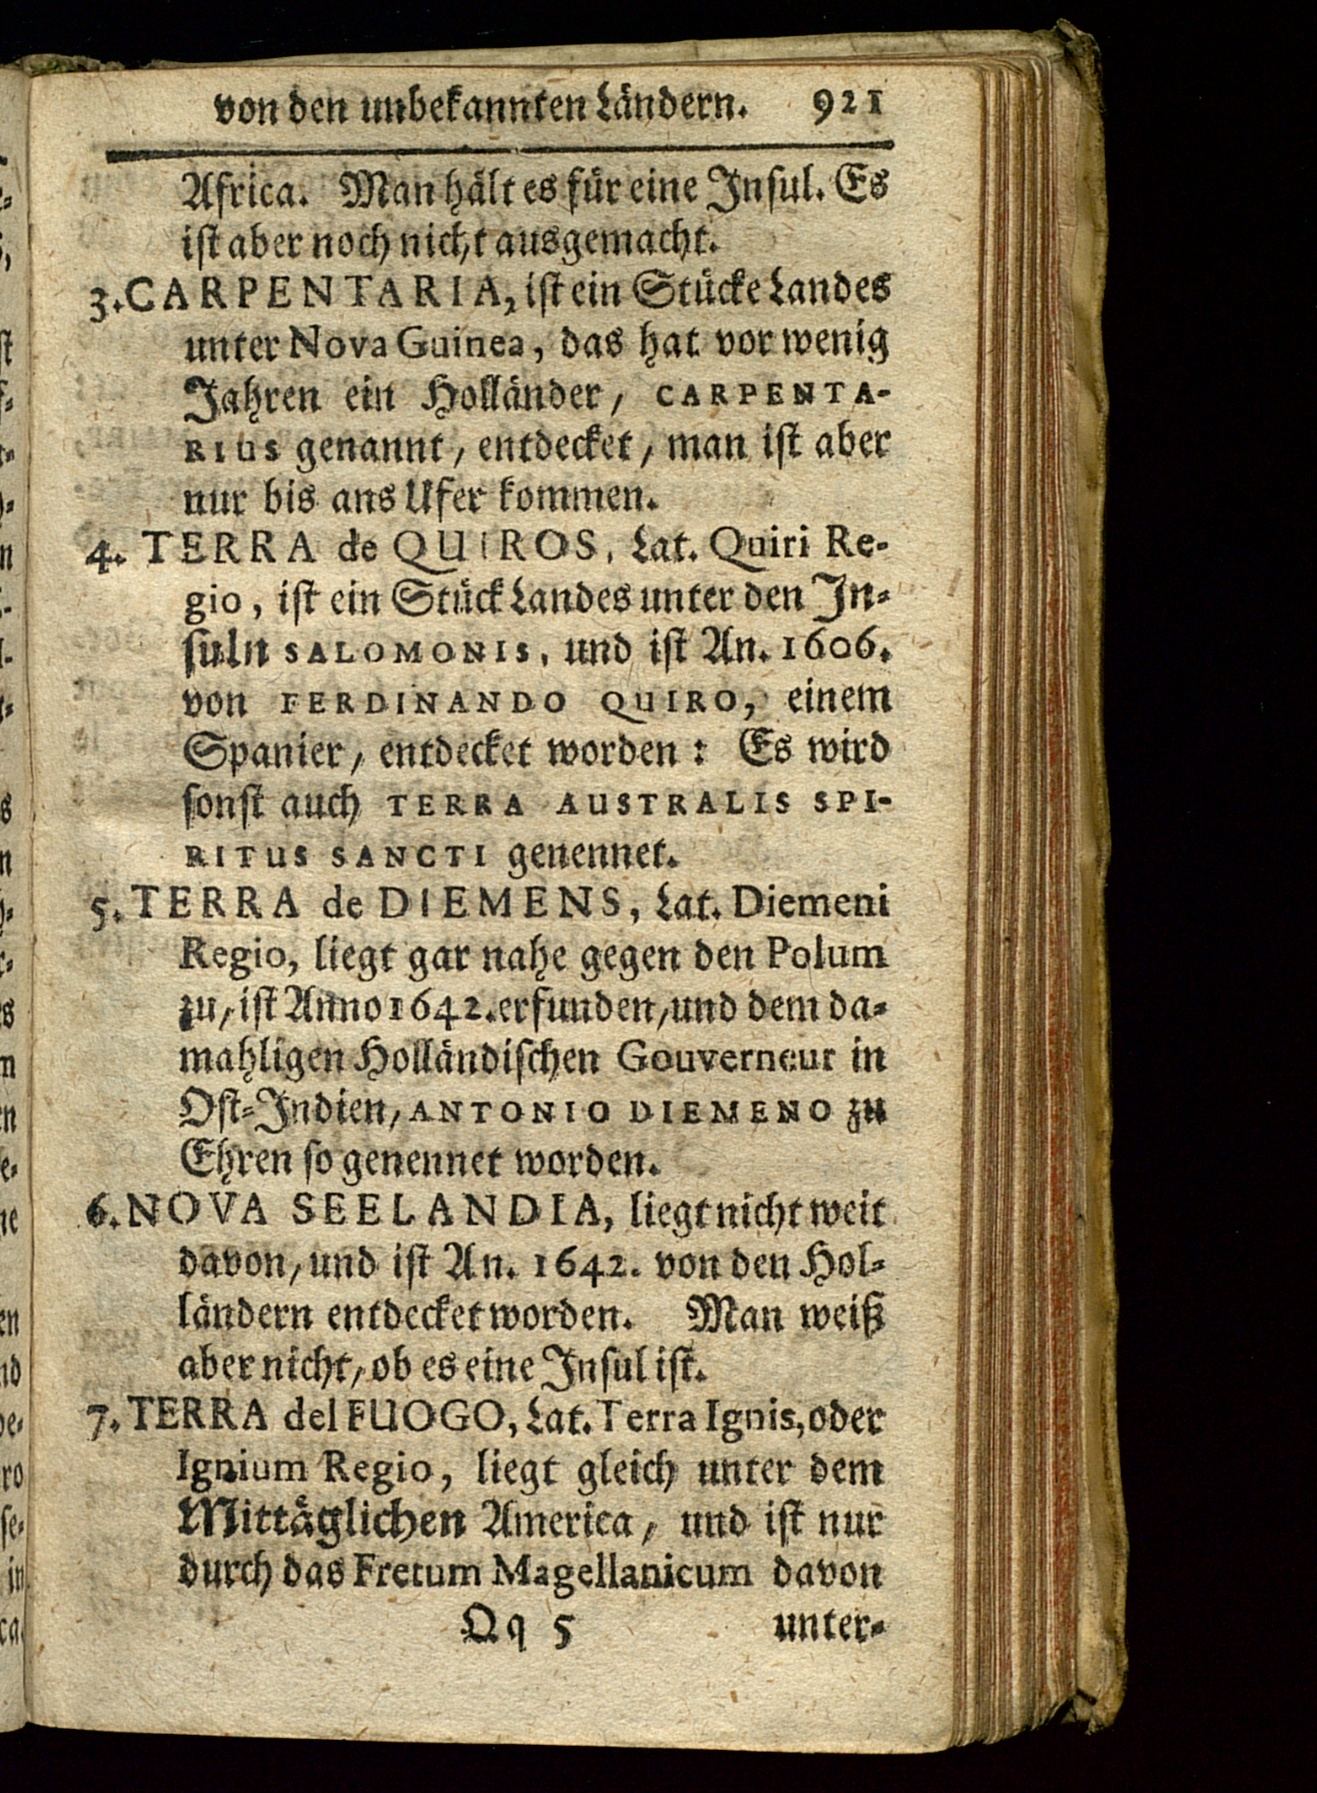 von den unbekannten Ländern. 921
Africa. Man hält es für eine Insul. Es
ist aber noch nicht ausgemacht.
3. CARPENTARIA, ist ein Stücke Landes
unter Nova Guinea, das hat vor wenig
Jahren ein Holländer, CARPENTA-
RIUS genannt, entdecket, man ist aber
nur bis ans Ufer kommen.
4. TERRA de QUIROS, Lat. Quiri Re-
gio, ist ein Stück Landes unter den In-
suln SALOMONIS, und ist An. 1606.
von FERDINANDO QUIRO, einem
Spanier, entdecket worden: Es wird
sonst auch TERRA AUSTRALIS SPI-
RITUS SANCTI genennet.
5. TERRA de DIEMENS, Lat. Diemeni
Regio, liegt gar nahe gegen den Polum
zu, ist Anno 1642. erfunden, und dem da-
mahligen Holländischen Gouverneur in
Ost-Indien, ANTONIO DIEMENO zu
Ehren so genennet worden.
6. NOVA SEELANDIA, liegt nicht weit
davon, und ist An. 1642. von den Hol-
ländern entdecket worden. Man weiß
aber nicht, ob es eine Insul ist.
7. TERRA del FUOGO, Lat. Terra Ignis, oder
Ignium Regio, liegt gleich unter dem
Mittäglichen America, und ist nur
durch das Fretum Magellanicum davon
Qq 5 unter-